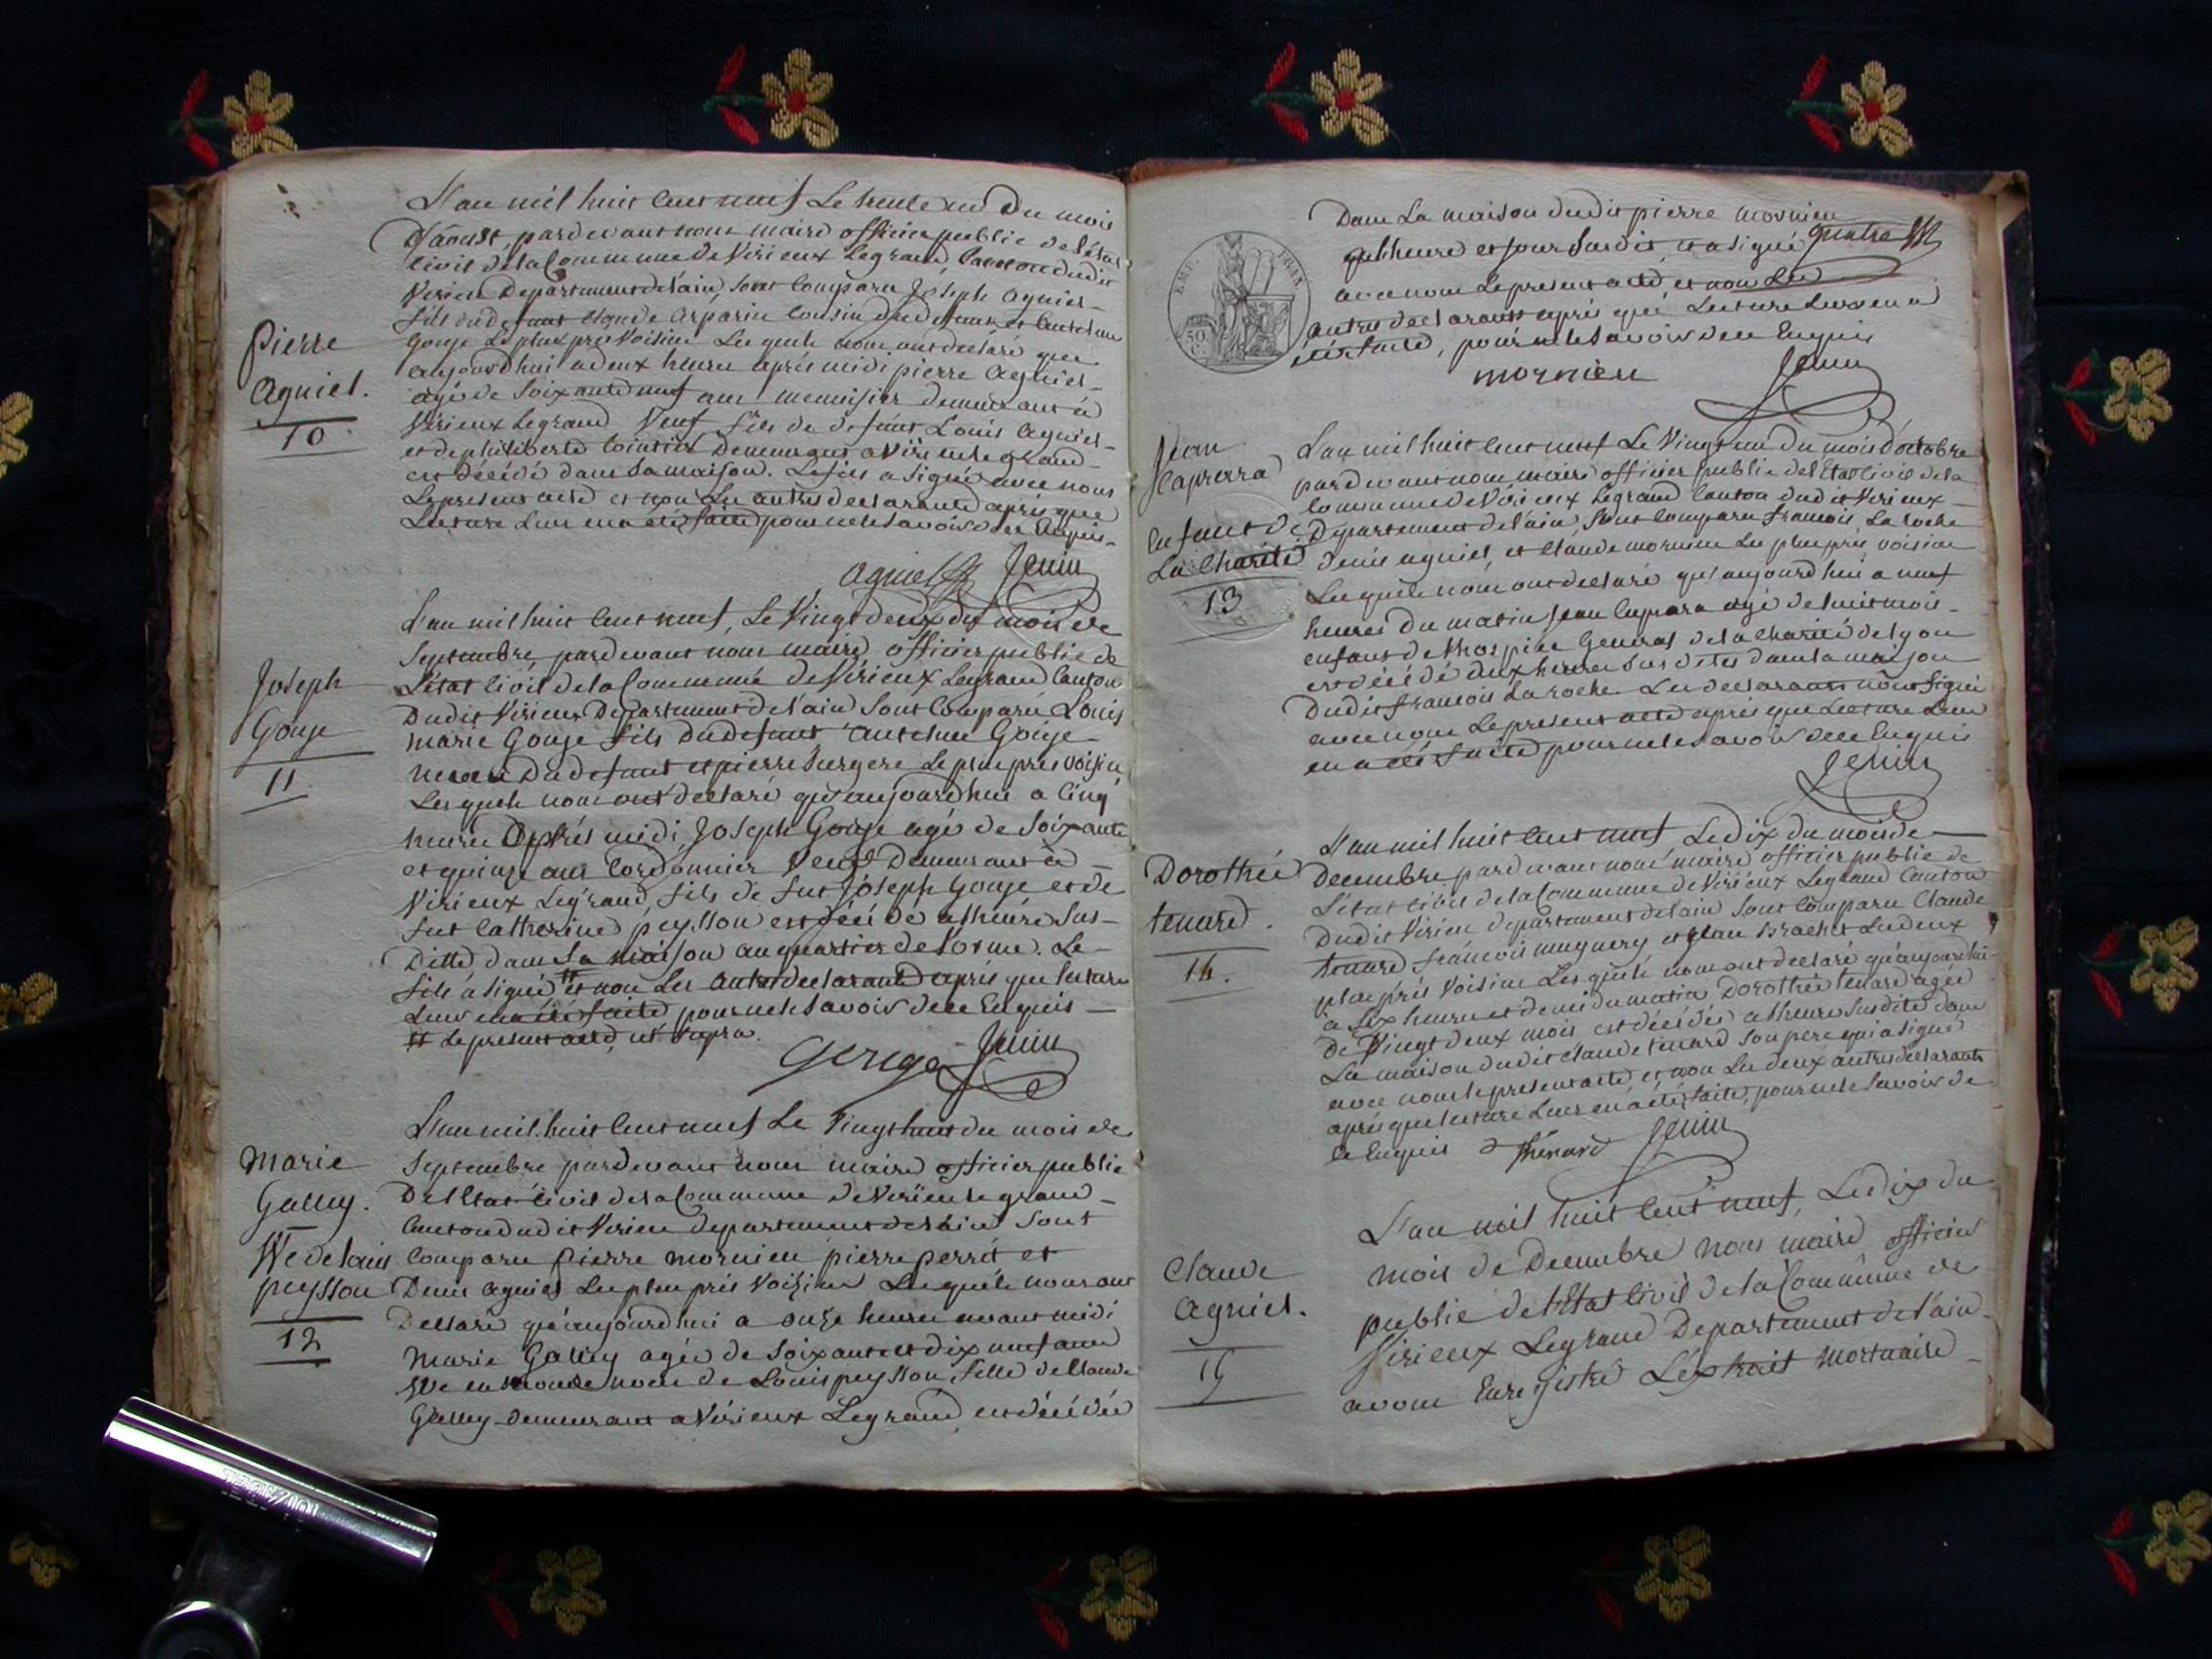 L'an mil huit cent neuf Le trente un Du mois
D'aoust, pardevant nous maire officier public de l'état
civil de la Commune de Virieux Legrand, Canton dudit
Virieu Departement de l'ain, sont comparu Joseph agniel
fils du defunt cousin du defunt, et anthelme
Gouje Le plus près Voisin Lesquels nous ont declaré que
aujourd'huil a deux heures après midi pierre Agniel
agé de Soixante neuf ans menuisier demeurant à
Virieux Legrand Veuf fils de defunt Louis Agniel
et de philiberte Demeurant a Virieu le grand
est décédé dans sa maison. Le fils a signé avec nous
Le present acte et non Les autres declarants après que
Lecture Leur en a été faite pour ne le Savoir de ce Enquis
Pierre
Agniel.
10
agniel Jenin
L'an mil huit Cent neuf, Le Vingt deux du mois de
Septembre, pardevant nous maire officier public de
L'état Civil de la Commune de Virieux Legrand Canton
Dudit Virieux Departement de l'ain Sont Comparu Louis
marie Gouje fils Du defunt antelme Gouje
neveu Du defunt et pierre Surgere Le plus près voisin
Lesquels nous ont declaré qu'aujourdhui a Cinq
heures Après midi, Joseph Gouje agé de Soixante
et quinze ans Cordonnier Veuf Demeurant à
Virieux Legrand fils de fut Joseph Gouje et de
fut Catherine peysson est décédé a lheure Sus-
Ditte dans Sa maison au quartier de Lorme. Le
fils a signé # et non Les autres declarants après que lecture
Leur en a été faite pour ne le Savoir de ce Enquis
# Le present acte, ut Supra.
Joseph
Gouje
11
Gouge Jenin
L'an mil huit Cent neuf Le Vingt huit du mois de
Septembre pardevant nous maire officier public
De l'Etat Civil de la Commune de Virieu le grand
Canton dudit Virieu departement de l'ain Sont
Comparu pierre mornieu pierre perret et
Denis agniel Les plus près Voisins Lesquels nous ont
Declaré qu'aujourd'hui a onze heures avant midi
Marie Galley agée de Soixante et dix neuf ans
Ve en Seconde noce de Louis peysson fille de Claude
Galley demeurant a Virieux Legrand, est décédée
Marie
Galley.
Ve de Louis
peysson
12
EMP. FRAN.
50 C.
Dans La maison dudit pierre mornieu
quatre
heure et jour Susdit, et a signé
avec nous Le present acte, et non Les
autres declarants après que Lecture Leur en a
été faite, pour ne le Savoir de ce Enquis
mornieu Jenin
Jean
Caprerra
Enfant de
La Charité
13
L'an mil huit Cent neuf Le Vingt un Du mois d'octobre
pardevant nous maire officier public de l'Etat Civil de la
Commune de Virieux Legrand Canton dudit Virieux
Departement de l'ain Sont Comparu francois Laroche
Denis agniel, et Claude mornieu Les plus près voisins
Lesquels nous ont declaré qu'aujourd'hui a neuf
heures Du matin Jean Caprara agé de huit mois
enfant de lhospice General de la Charité de Lyon
est décédé aux heures Sus dites dans la maison
Dudit francois Laroche. Les declarants n'ont Signé
avec nous Le present acte après que Lecture Leur
en a été faite pour ne le Savoir de ce Enquis
Jenin
Dorothée
tenard.
14.
L'an mil huit Cent neuf Le dix du mois de
Decembre pardevant nous maire officier public de
L'état Civil de la Commune de Virieux Legrand Canton
Dudit Virieu departement de lain Sont Comparu Claude
tenard francois mugnery et Jean Brachet Les deux
plus près Voisins Lesquels nous ont declaré qu'aujourdhui
à Six heures et demi du matin Dorothée tenard agée
De Vingt deux mois est décédée a lheure Susdite dans
La maison dudit Claude tenard Son pere qui a signé
avec nous le present acte, et non Les deux autres declarants
après que lecture Leur en a été faite, pour ne le Savoir de
Ce Enquis thénard Jenin
Claude
Agniel.
15
L'an mil huit Cent neuf, Le dix du
mois de Decembre nous maire officier
public de l'Etat Civil de la Commune de
Virieux Legrand Departement de l'ain
avons Enregistré L'extrait Mortuaire